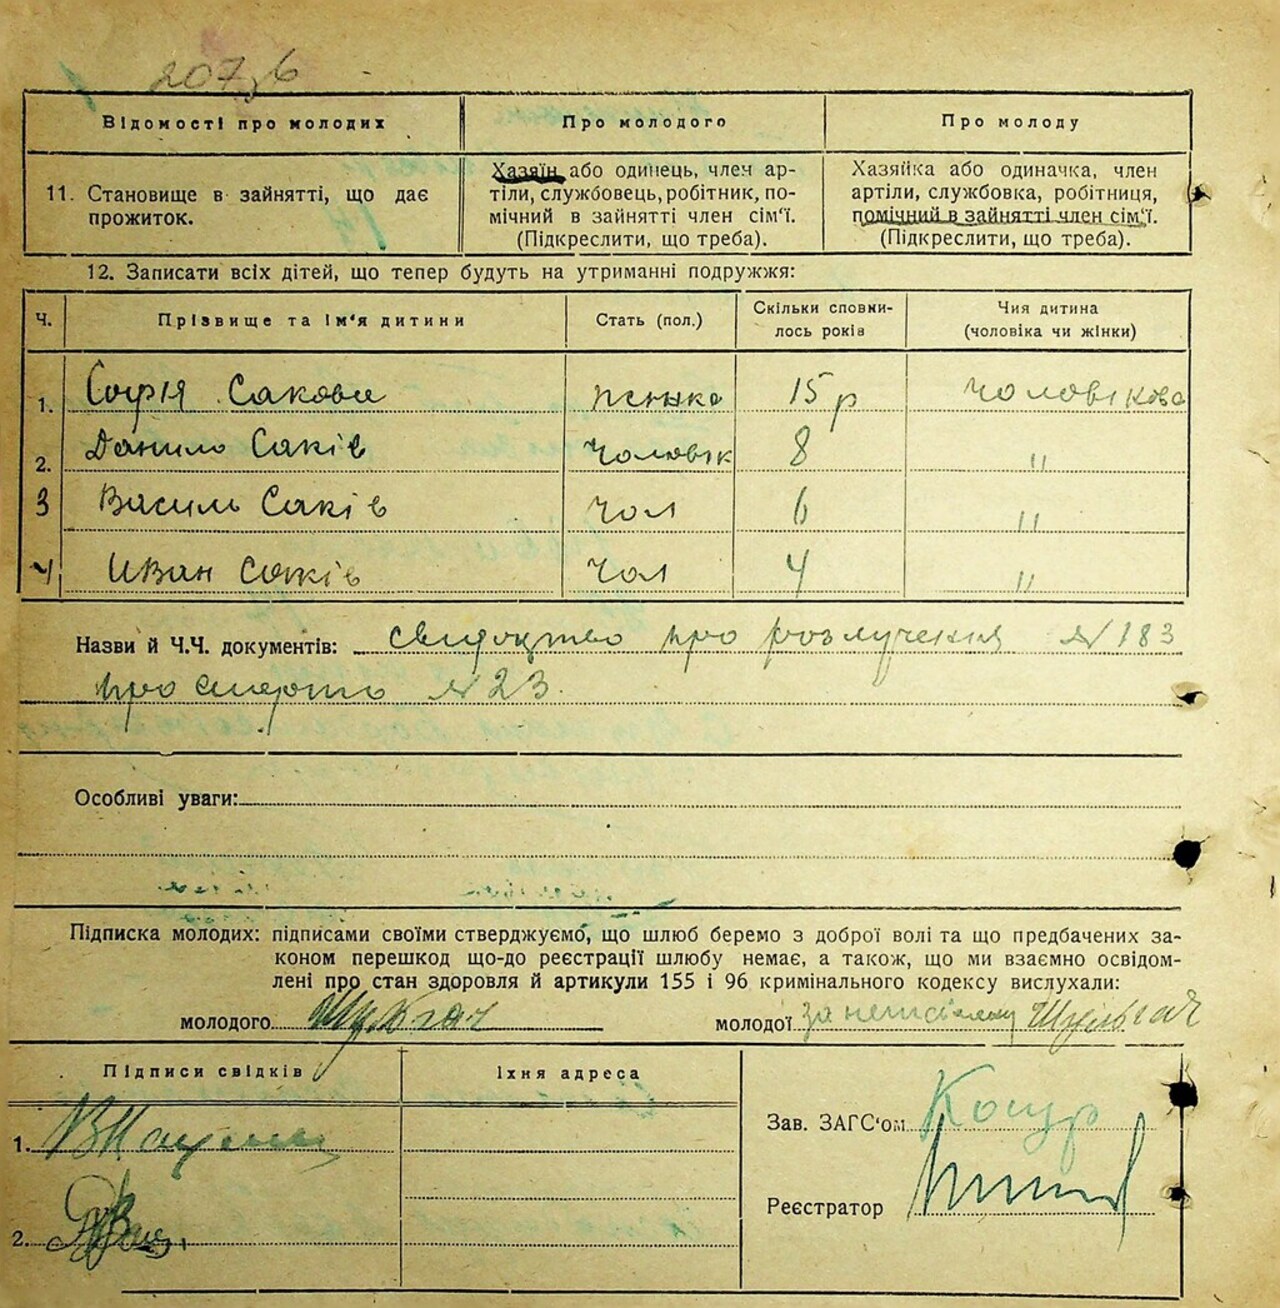 207зв
Відомості про молодих
Про молодого
Про молоду
11. Становище в зайнятті, що дає
прожиток.
Хазяїн або одинець, член ар-
тіли, службовець, робітник, по-
мічний в зайнятті член сім'ї.
(Підкреслити, що треба).
Хазяйка або одиначка, член
артіли, службовка, робітниця,
помічний в зайнятті член сім'ї.
(Підкреслити, що треба).
12. Записати всіх дітей, що тепер будуть на утриманні подружжя:
Ч.
Прізвище та ім'я дитини
Стать (пол.)
Скільки сповни-
лось років
Чия дитина
(чоловіка чи жінки)
1. Софія Сакова 15 р чоловікова
2. Данило Саків чоловік 8 "
3 Василь Саків чол 6 "
4 Иван Саків чол 4 "
Назви й Ч.Ч. документів: свидоцтво про розлучения № 183
про смерть № 23.
Особливі уваги:
Підписка молодих: підписами своїми стверджуємо, що шлюб беремо з доброї волі та що предбачених за-
коном перешкод що-до реєстрації шлюбу немає, а також, що ми взаємно освідом-
лені про стан здоровля й артикули 155 і 96 кримінального кодексу вислухали:
молодого
молодої за неписьмену
Підписи свідків
Їхня адреса
1.
2.
Зав. ЗАГС'ом
Реєстратор